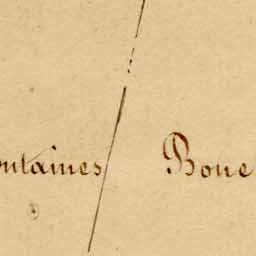 ontaines Boue